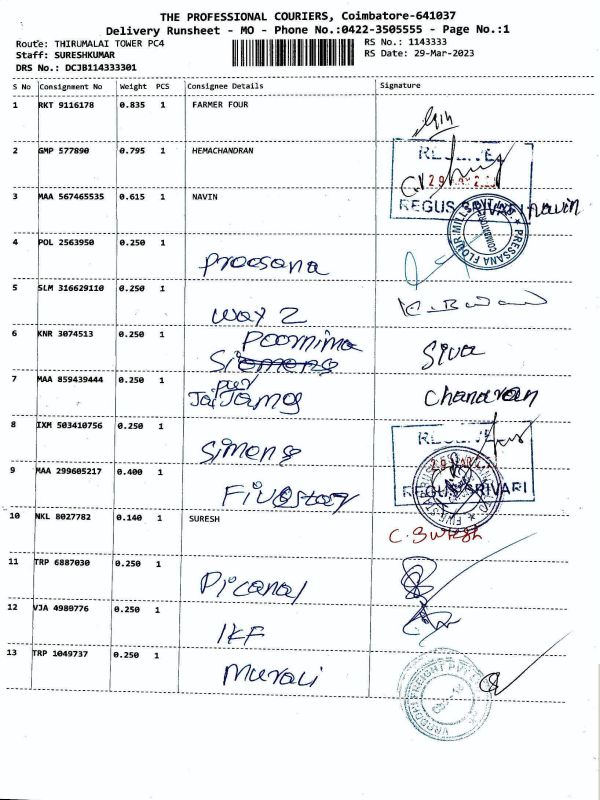 THE PROFESSIONAL COURIERS, Coimbatore-641037
Delivery Runsheet - MO - Phone No.:0422-3505555 - Page No.:1
Route: THIRUMALAI TOWER PC4 RS No.: 1143333
Staff: SURESHKUMAR RS Date: 29-Mar-2023
DRS No.: DCJB114333301
S No Consignment No Weight PCS Consignee Details Signature
1 RKT 9116178 0.835 1 FARMER FOUR
2 GMP 577890 0.795 1 HEMACHANDRAN
3 MAA 567465535 0.615 1 NAVIN Navin
REGUS
PRESSANA FLOUR MILLS
COIMBATORE
4 POL 2563950 0.250 1
Preesana
5 SLM 316629110 0.250 1
Way 2
6 KNR 3074513 0.250 1 Poornima Siva
7 MAA 859439444 0.250 1 Chandran
8 IXM 503410756 0.250 1
Simens
9 MAA 299605217 0.400 1
Fivestar
REGUS SRIVARI
10 NKL 8027782 0.140 1 SURESH
11 TRP 6887030 0.250 1
Picanal
12 VJA 4989776 0.250 1
IKF
13 TRP 1049737 0.250 1
Murali